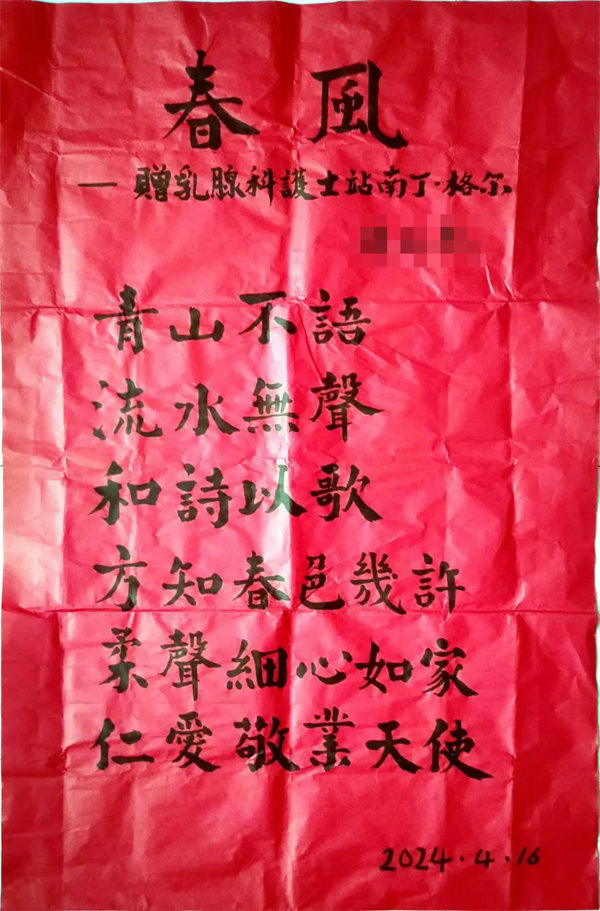 春風
——贈乳腺科護士站南丁·格尔
青山不語
流水無聲
和詩以歌
方知春邑幾許
柔聲細心如家
仁愛敬業天使
2024.4.16